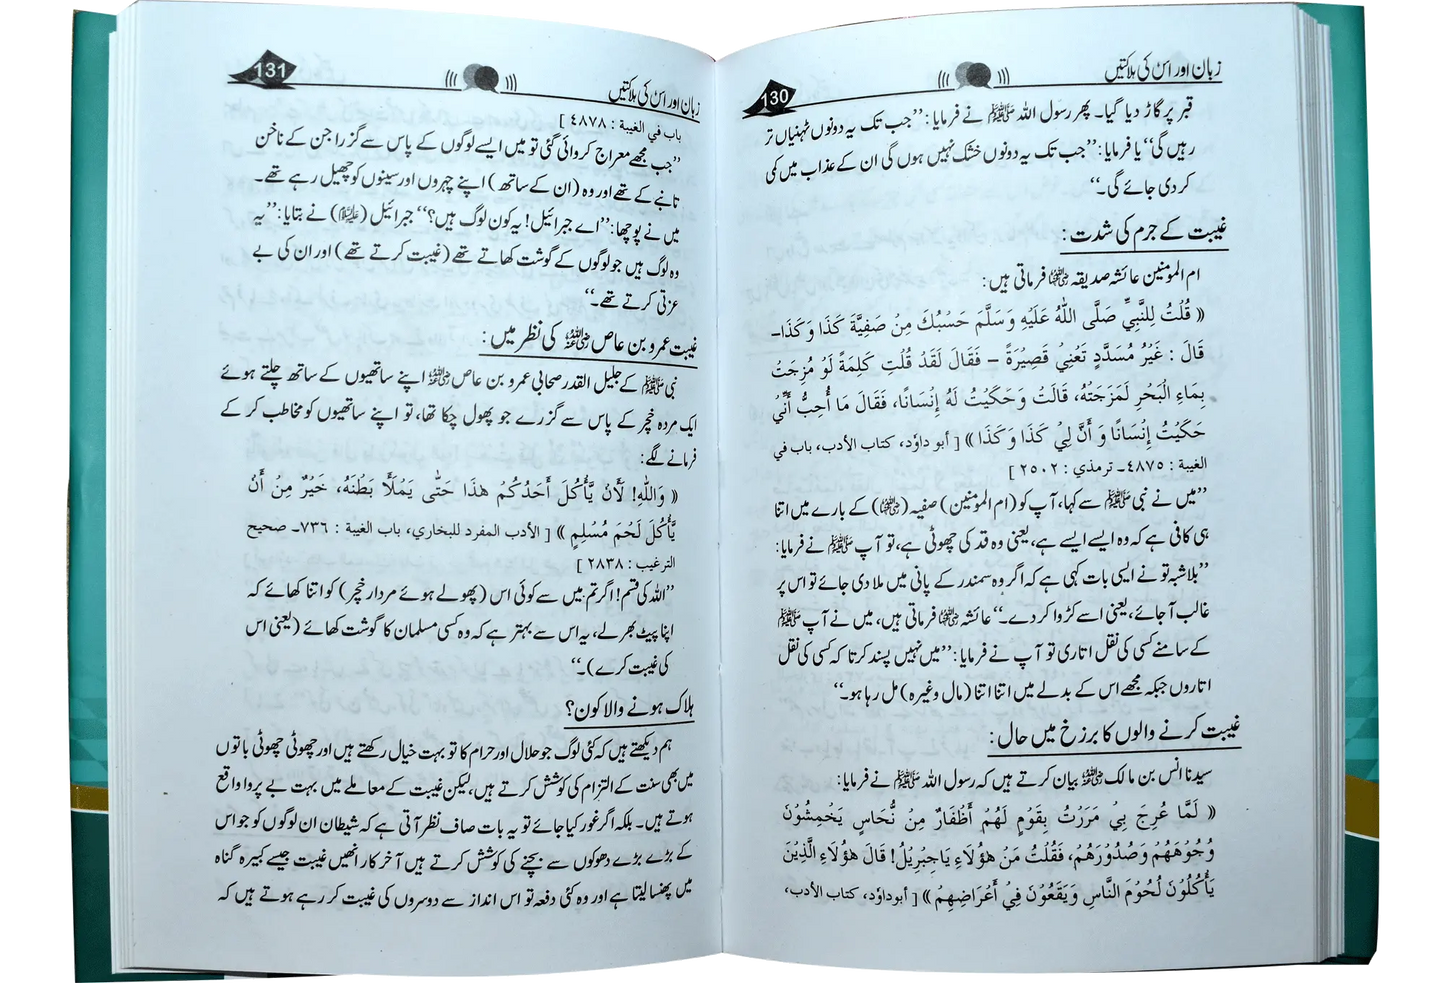 130
زبان اور اس کی ہلاکتیں
قبر پر گاڑ دیا گیا۔ پھر رسول اللہ ﷺ نے فرمایا: ’’جب تک یہ دونوں ٹہنیاں تر
رہیں گی‘‘ یا فرمایا: ’’جب تک یہ دونوں خشک نہیں ہوں گی ان کے عذاب میں کمی
کر دی جائے گی۔‘‘
غیبت کے جرم کی شدت:
ام المومنین عائشہ صدیقہ رضی اللہ عنہا فرماتی ہیں:
« قُلْتُ لِلنَّبِيِّ صَلَّى اللّٰهُ عَلَيْهِ وَسَلَّمَ حَسْبُكَ مِنْ صَفِيَّةَ كَذَا وَ كَذَا۔
قَالَ : غَيْرُ مُسَدَّدٍ تَعْنِيْ قَصِيْرَةً – فَقَالَ لَقَدْ قُلْتِ كَلِمَةً لَوْ مُزِجَتْ
بِمَاءِ الْبَحْرِ لَمَزَجَتْهُ، قَالَتْ وَحَكَيْتُ لَهُ إِنْسَانًا، فَقَالَ مَا أُحِبُّ أَنِّيْ
حَكَيْتُ إِنْسَانًا وَ أَنَّ لِيْ كَذَا وَ كَذَا » [ أبو داؤد، كتاب الأدب، باب في
الغيبة : ٤٨٧٥۔ ترمذي : ٢٥٠٢ ]
’’میں نے نبی ﷺ سے کہا، آپ کو (ام المومنین) صفیہ (رضی اللہ عنہا) کے بارے میں اتنا
ہی کافی ہے کہ وہ ایسے ایسے ہے، یعنی وہ قد کی چھوٹی ہے، تو آپ ﷺ نے فرمایا:
’’بلاشبہ تو نے ایسی بات کہی ہے کہ اگر وہ سمندر کے پانی میں ملا دی جائے تو اس پر
غالب آ جائے، یعنی اسے کڑوا کر دے۔‘‘ عائشہ رضی اللہ عنہا فرماتی ہیں، میں نے آپ ﷺ
کے سامنے کسی کی نقل اتاری تو آپ نے فرمایا: ’’میں نہیں پسند کرتا کہ کسی کی نقل
اتاروں جبکہ مجھے اس کے بدلے میں اتنا اتنا (مال وغیرہ) مل رہا ہو۔‘‘
غیبت کرنے والوں کا برزخ میں حال:
سیدنا انس بن مالک رضی اللہ عنہ بیان کرتے ہیں کہ رسول اللہ ﷺ نے فرمایا:
« لَمَّا عُرِجَ بِيْ مَرَرْتُ بِقَوْمٍ لَهُمْ أَظْفَارٌ مِنْ نُّحَاسٍ يَخْمِشُوْنَ
وُجُوْهَهُمْ وَصُدُوْرَهُمْ، فَقُلْتُ مَنْ هٰؤُلَاءِ يَا جِبْرِيْلُ! قَالَ هٰؤُلَاءِ الَّذِيْنَ
يَأْكُلُوْنَ لُحُوْمَ النَّاسِ وَيَقَعُوْنَ فِيْ أَعْرَاضِهِمْ » [ أبوداؤد، كتاب الأدب،
131
زبان اور اس کی ہلاکتیں
باب في الغيبة : ٤٨٧٨ ]
’’جب مجھے معراج کروائی گئی تو میں ایسے لوگوں کے پاس سے گزرا جن کے ناخن
تانبے کے تھے اور وہ (ان کے ساتھ) اپنے چہروں اور سینوں کو چھیل رہے تھے۔
میں نے پوچھا: ’’اے جبرائیل! یہ کون لوگ ہیں؟‘‘ جبرائیل (علیہ السلام) نے بتایا: ’’یہ
وہ لوگ ہیں جو لوگوں کے گوشت کھاتے تھے (غیبت کرتے تھے) اور ان کی بے
عزتی کرتے تھے۔‘‘
غیبت عمرو بن عاص رضی اللہ عنہ کی نظر میں:
نبی ﷺ کے جلیل القدر صحابی عمرو بن عاص رضی اللہ عنہ اپنے ساتھیوں کے ساتھ چلتے ہوئے
ایک مردہ خچر کے پاس سے گزرے جو پھول چکا تھا، تو اپنے ساتھیوں کو مخاطب کر کے
فرمانے لگے:
« وَاللّٰهِ! لَأَنْ يَّأْكُلَ أَحَدُكُمْ هٰذَا حَتّٰى يَمْلَأَ بَطْنَهُ، خَيْرٌ مِنْ أَنْ
يَّأْكُلَ لَحْمَ مُسْلِمٍ » [ الأدب المفرد للبخاري، باب الغيبة : ٧٣٦۔ صحيح
الترغيب : ٢٨٣٨ ]
’’اللہ کی قسم! اگر تم میں سے کوئی اس (پھولے ہوئے مردار خچر) کو اتنا کھائے کہ
اپنا پیٹ بھر لے، یہ اس سے بہتر ہے کہ وہ کسی مسلمان کا گوشت کھائے (یعنی اس
کی غیبت کرے)۔‘‘
ہلاک ہونے والا کون؟
ہم دیکھتے ہیں کہ کئی لوگ جو حلال اور حرام کا تو بہت خیال رکھتے ہیں اور چھوٹی چھوٹی باتوں
میں بھی سنت کے التزام کی کوشش کرتے ہیں، لیکن غیبت کے معاملے میں بہت بے پروا واقع
ہوتے ہیں۔ بلکہ اگر غور کیا جائے تو یہ بات صاف نظر آتی ہے کہ شیطان ان لوگوں کو جو اس
کے بڑے بڑے دھوکوں سے بچنے کی کوشش کرتے ہیں آخر کار انھیں غیبت جیسے کبیرہ گناہ
میں پھنسا لیتا ہے اور وہ کئی دفعہ تو اس انداز سے دوسروں کی غیبت کر رہے ہوتے ہیں کہ